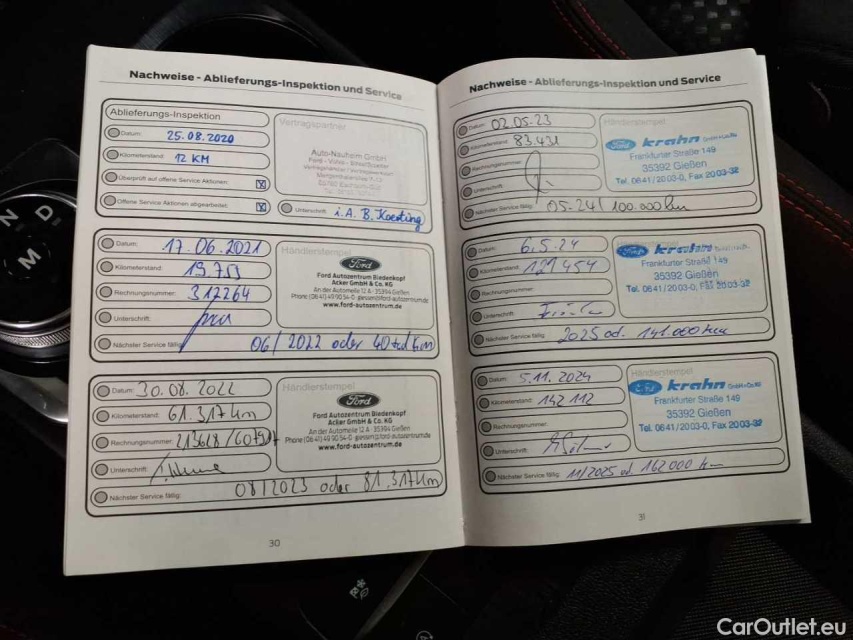 Nachweise - Ablieferungs-Inspektion und Service
Ablieferungs-Inspektion
Datum: 25.08.2020
Kilometerstand: 12 KM
Überprüft auf offene Service Aktionen: X
Offene Service Aktionen abgearbeitet: X
Vertragspartner
Auto-Nauheim GmbH
Unterschrift: i.A. B. Koenting
Datum: 17.06.2021
Kilometerstand: 19.753
Rechnungsnummer: 312264
Unterschrift:
Nächster Service fällig: 06/2022 oder 40tsd km
Händlerstempel
Ford
Ford Autozentrum Biedenkopf
Acker GmbH & Co. KG
An der Automeile 12 A · 35394 Gießen
Phone (06 41) 49 90 54-0 · giessen@ford-autozentrum.de
www.ford-autozentrum.de
Datum: 30.08.2022
Kilometerstand: 61.317 km
Rechnungsnummer: 213618/
Unterschrift:
Nächster Service fällig: 08/2023 oder 81.317 km
Händlerstempel
Ford
Ford Autozentrum Biedenkopf
Acker GmbH & Co. KG
An der Automeile 12 A · 35394 Gießen
Phone (06 41) 49 90 54-0 · giessen@ford-autozentrum.de
www.ford-autozentrum.de
30
Nachweise - Ablieferungs-Inspektion und Service
Datum: 02.05.23
Kilometerstand: 83.431
Rechnungsnummer:
Unterschrift:
Nächster Service fällig: 05-24/100.000 km
Händlerstempel
Ford krahn GmbH+Co.KG
Frankfurter Straße 149
35392 Gießen
Tel. 0641/2003-0, Fax 2003-32
Datum: 6.5.24
Kilometerstand: 121454
Rechnungsnummer:
Unterschrift:
Nächster Service fällig: 2025 od. 141.000 km
Ford krahn
Frankfurter Straße 149
35392 Gießen
Tel. 0641/2003-0, Fax 2003-32
Datum: 5.11.2024
Kilometerstand: 142 112
Rechnungsnummer:
Unterschrift:
Nächster Service fällig: 11/2025 od. 162000 km
Händlerstempel
Ford krahn GmbH+Co.KG
Frankfurter Straße 149
35392 Gießen
Tel. 0641/2003-0, Fax 2003-32
31
N D
M
CarOutlet.eu